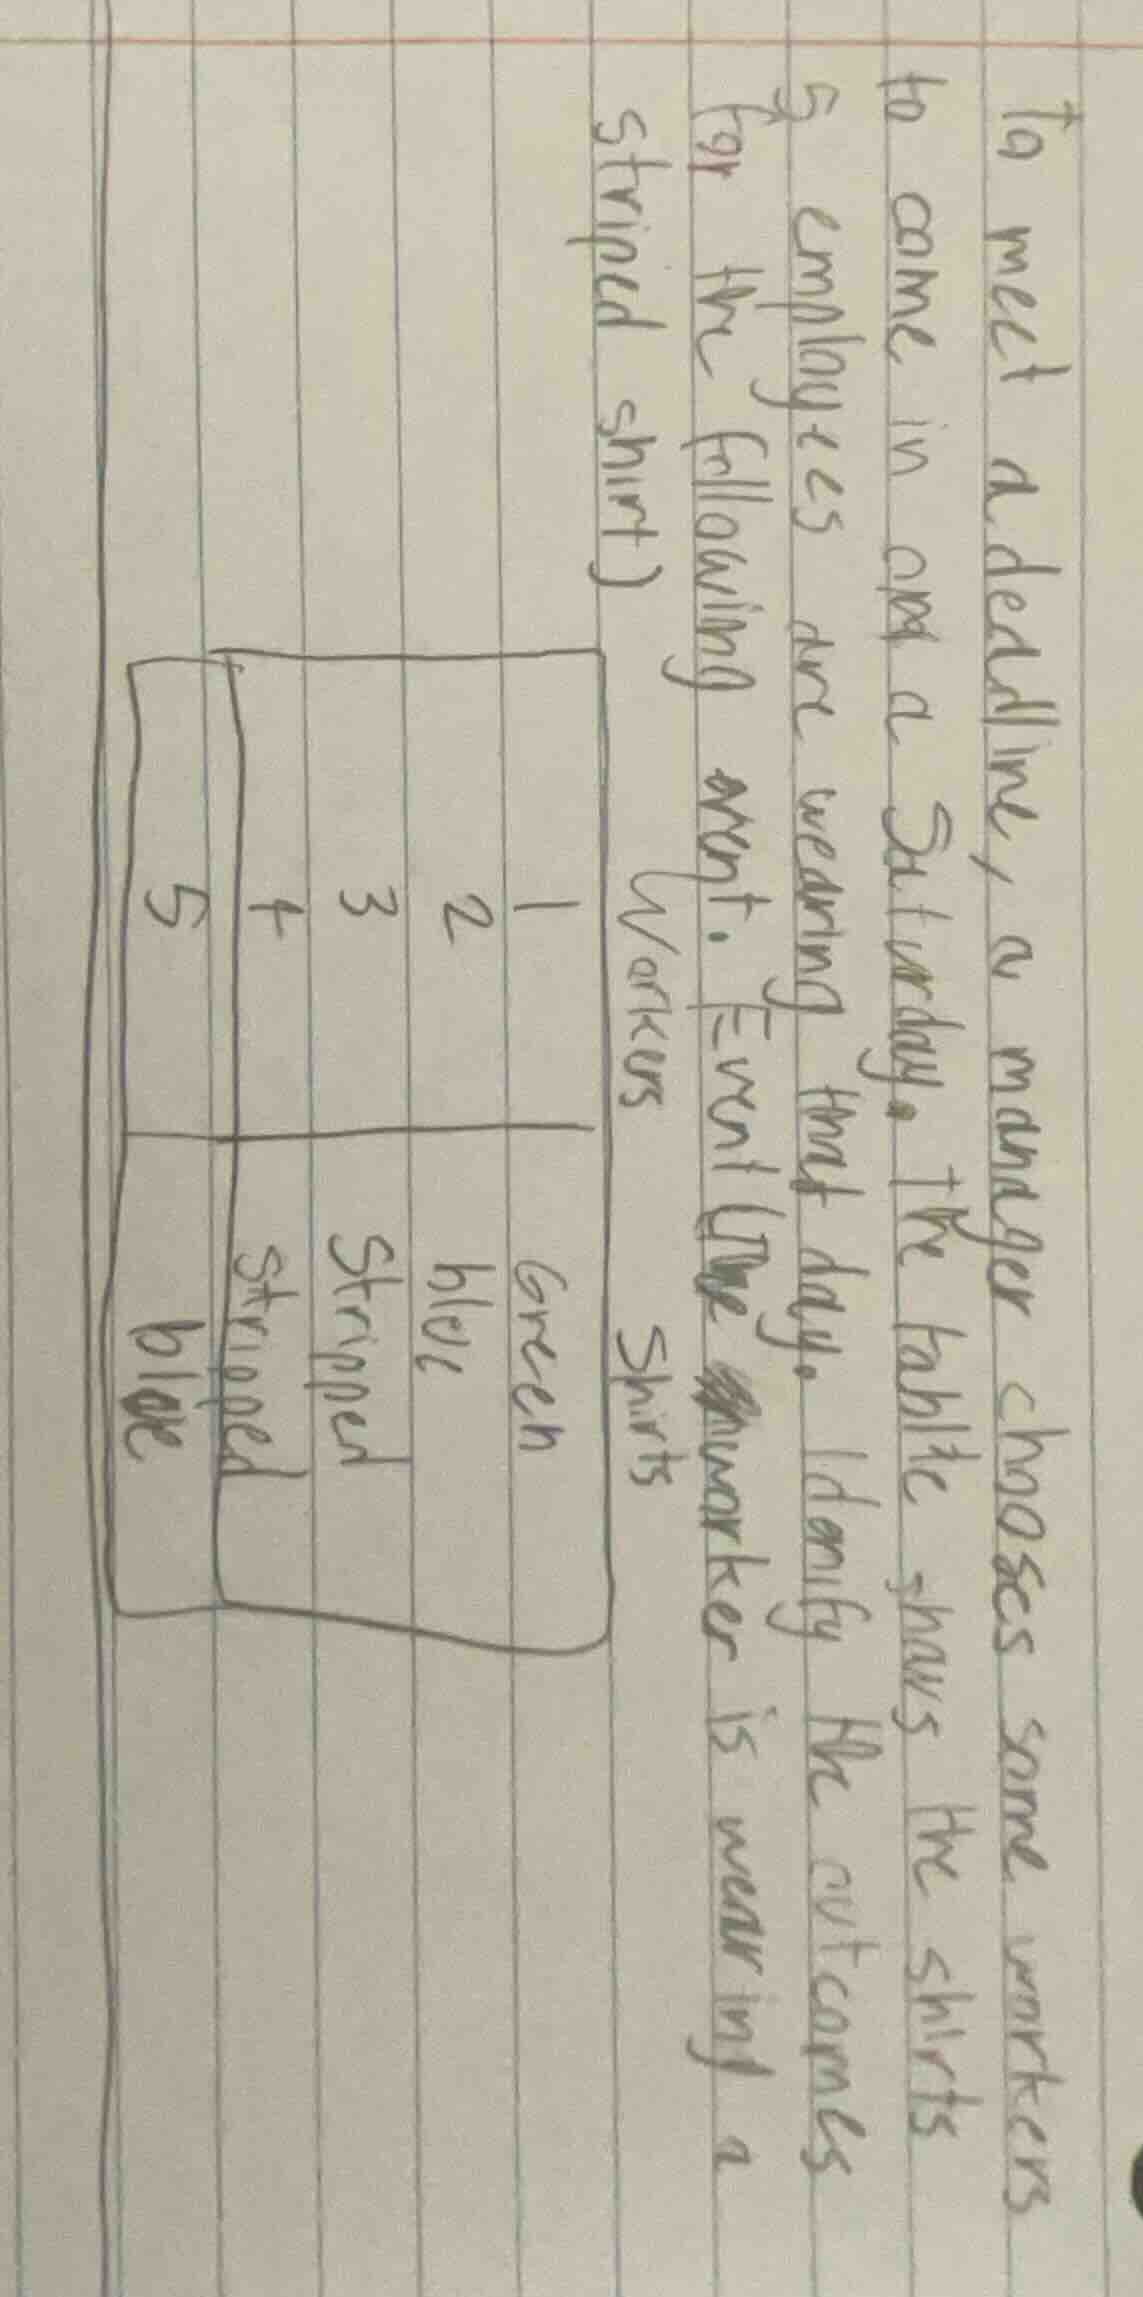 To meet a deadline, a manager chooses some workers
to come in on a Saturday. The table shows the shirts
5 employees are wearing that day. Idenify the outcomes
for the following event. Event (The worker is wearing a
striped shirt)
Workers Shirts
1 Green
2 blue
3 Stripped
4 striped
5 blue